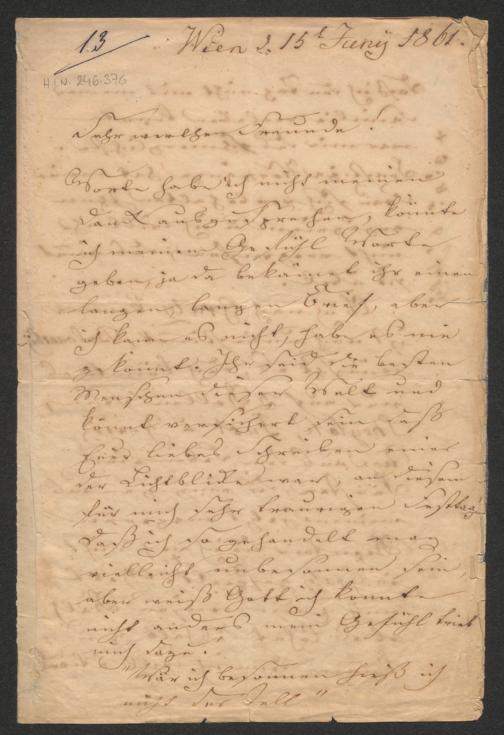 13
Wien d. 15t Juny 1861.
H.I.N. 246.376
Sehr werthe Freunde!
Worte habe ich nicht meinen
Dank auszusprechen, könnte
ich meinem Gefühl Worte
geben, ja da bekämet ihr einen
langen langen Brief, aber
ich kann es nicht, habe es nie
gekonnt. Ihr seid die besten
Menschen dieser Welt und
könnt versichert sein daß
Euer liebes Schreiben einer
der Lichtblicke war, an diesem
für mich sehr traurigen Festtag.
Daß ich so gehandelt mag
vielleicht unbesonnen sein,
aber weiß Gott ich konnte
nicht anders mein Gefühl trieb
mich dazu!
"Wär ich besonnen hieß ich
nicht der Tell"